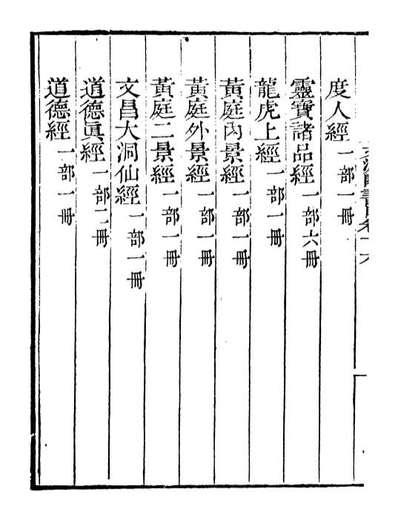 度人經一部一冊
靈寶諸品經一部六冊
龍虎上經一部一冊
黃庭內景經一部一冊
黃庭外景經一部一冊
黃庭二景經一部一冊
文昌大洞仙經一部一冊
道德眞經一部二冊
道德經一部一冊